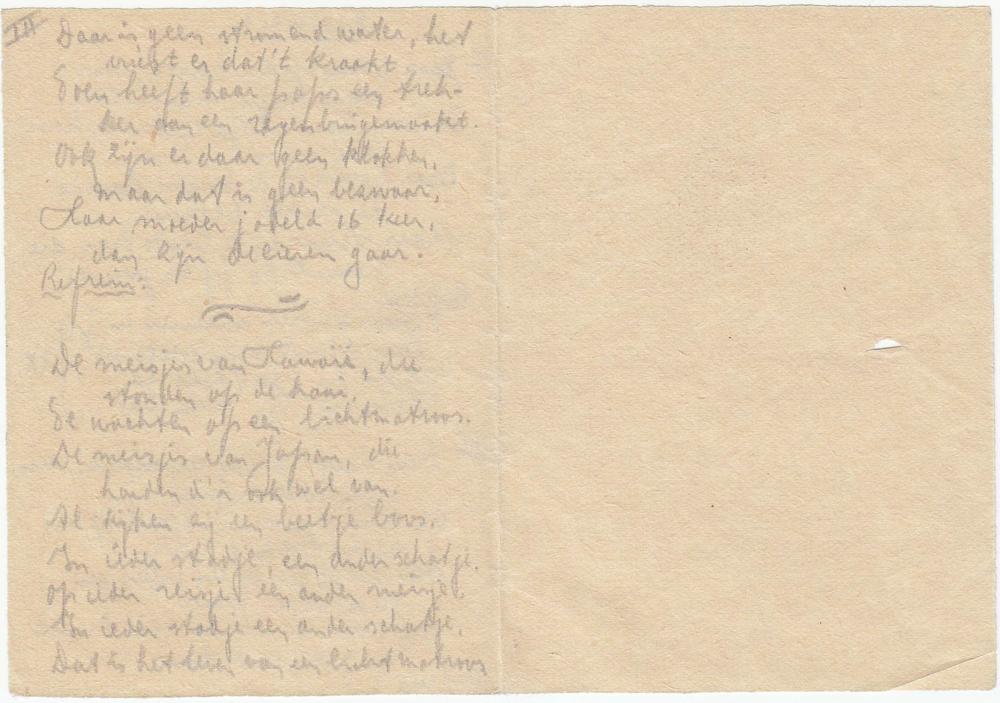 III
Daar is geen stromend water, het
vriest er dat 't kraakt.
Toen heeft haar papa een trek-
ker van een regenbuigemaakt.
Ook zijn er daar geen klokken,
maar dat is geen bezwaar,
Haar moeder jodeld 16 keer,
dan zijn de eieren gaar.
Refrein:
De meisjes van Hawaii, die
stonden op de kaai,
Te wachten op een lichtmatroos.
De meisjes van Japan, die
houden d'r ook wel van.
Al kijken zij een beetje boos.
In ieder stadje, een ander schatje.
Op ieder reisje een ander meisje.
In ieder stadje een ander schatje.
Dat is het leven van een lichtmatroos